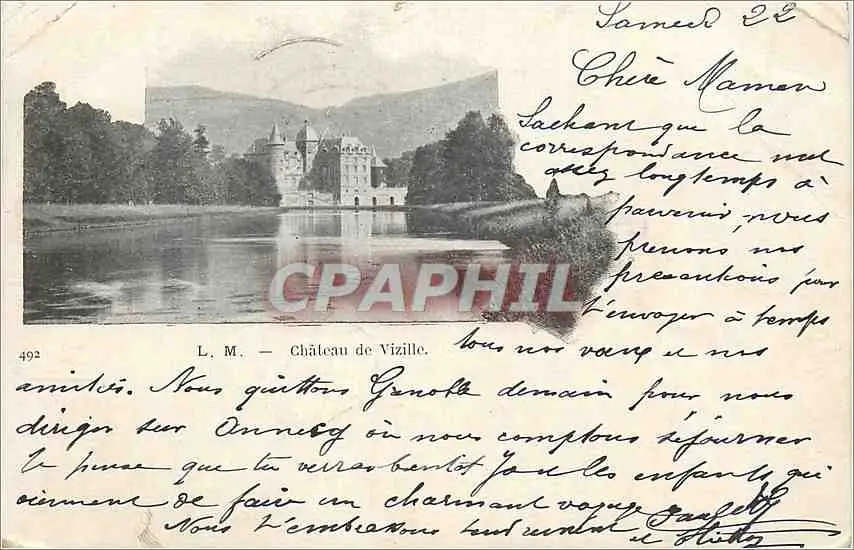 Samedi 22
Chère Maman
Sachant que la
correspondance met
assez longtemps à
parvenir, nous
prenons nos
précautions pour
t'envoyer à temps
tous nos vœux et nos
amitiés. Nous quittons Grenoble demain pour nous
diriger sur Annecy où nous comptons séjourner
Je pense que tu verras bientôt les enfants qui
viennent de faire un charmant voyage
Nous t'embrassons tendrement
et
CPAPHIL
492 L. M. — Château de Vizille.